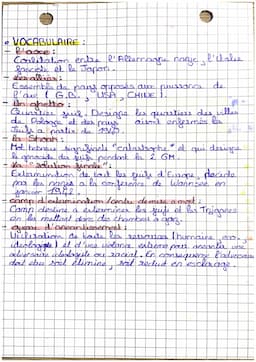 VOCABULAIRE :
L'axe :
Coalitation entre l'Allemagne nazie, l'Italie
fasciste et le Japon.
Les alliés :
Ensemble de pays opposés aux puissances de
l'axe ( G.B., USA, CHINE ).
Un ghetto :
Quartier juif. Designe les quartiers des villes
de Pologne et des pays où sont enfermés les
Juifs a partir de 1940.
la Shoah :
Mot hébreu signifiant "catastrophe" et qui designe
le genocide des juifs pendant la 2 GM.
la "solution finale" :
Extermination de tout les juifs d'Europe, décidé
par les nazis a la conférence de Wannsee en
janvier 1942.
camp d'extermination / centre de mise a mort :
Camp destiné a exterminer les juifs et les Tziganes
en les mettant dans des chambres a gaz.
guerre d'anéantissement :
Utilisation de toutes les ressources (humaine, eco,
ideologique) et d'une violence extreme pour aneantir une
adversaire ideologiste ou racial. En consequence l'adversaire
doit etre soit eliminé, soit reduit en esclavage.